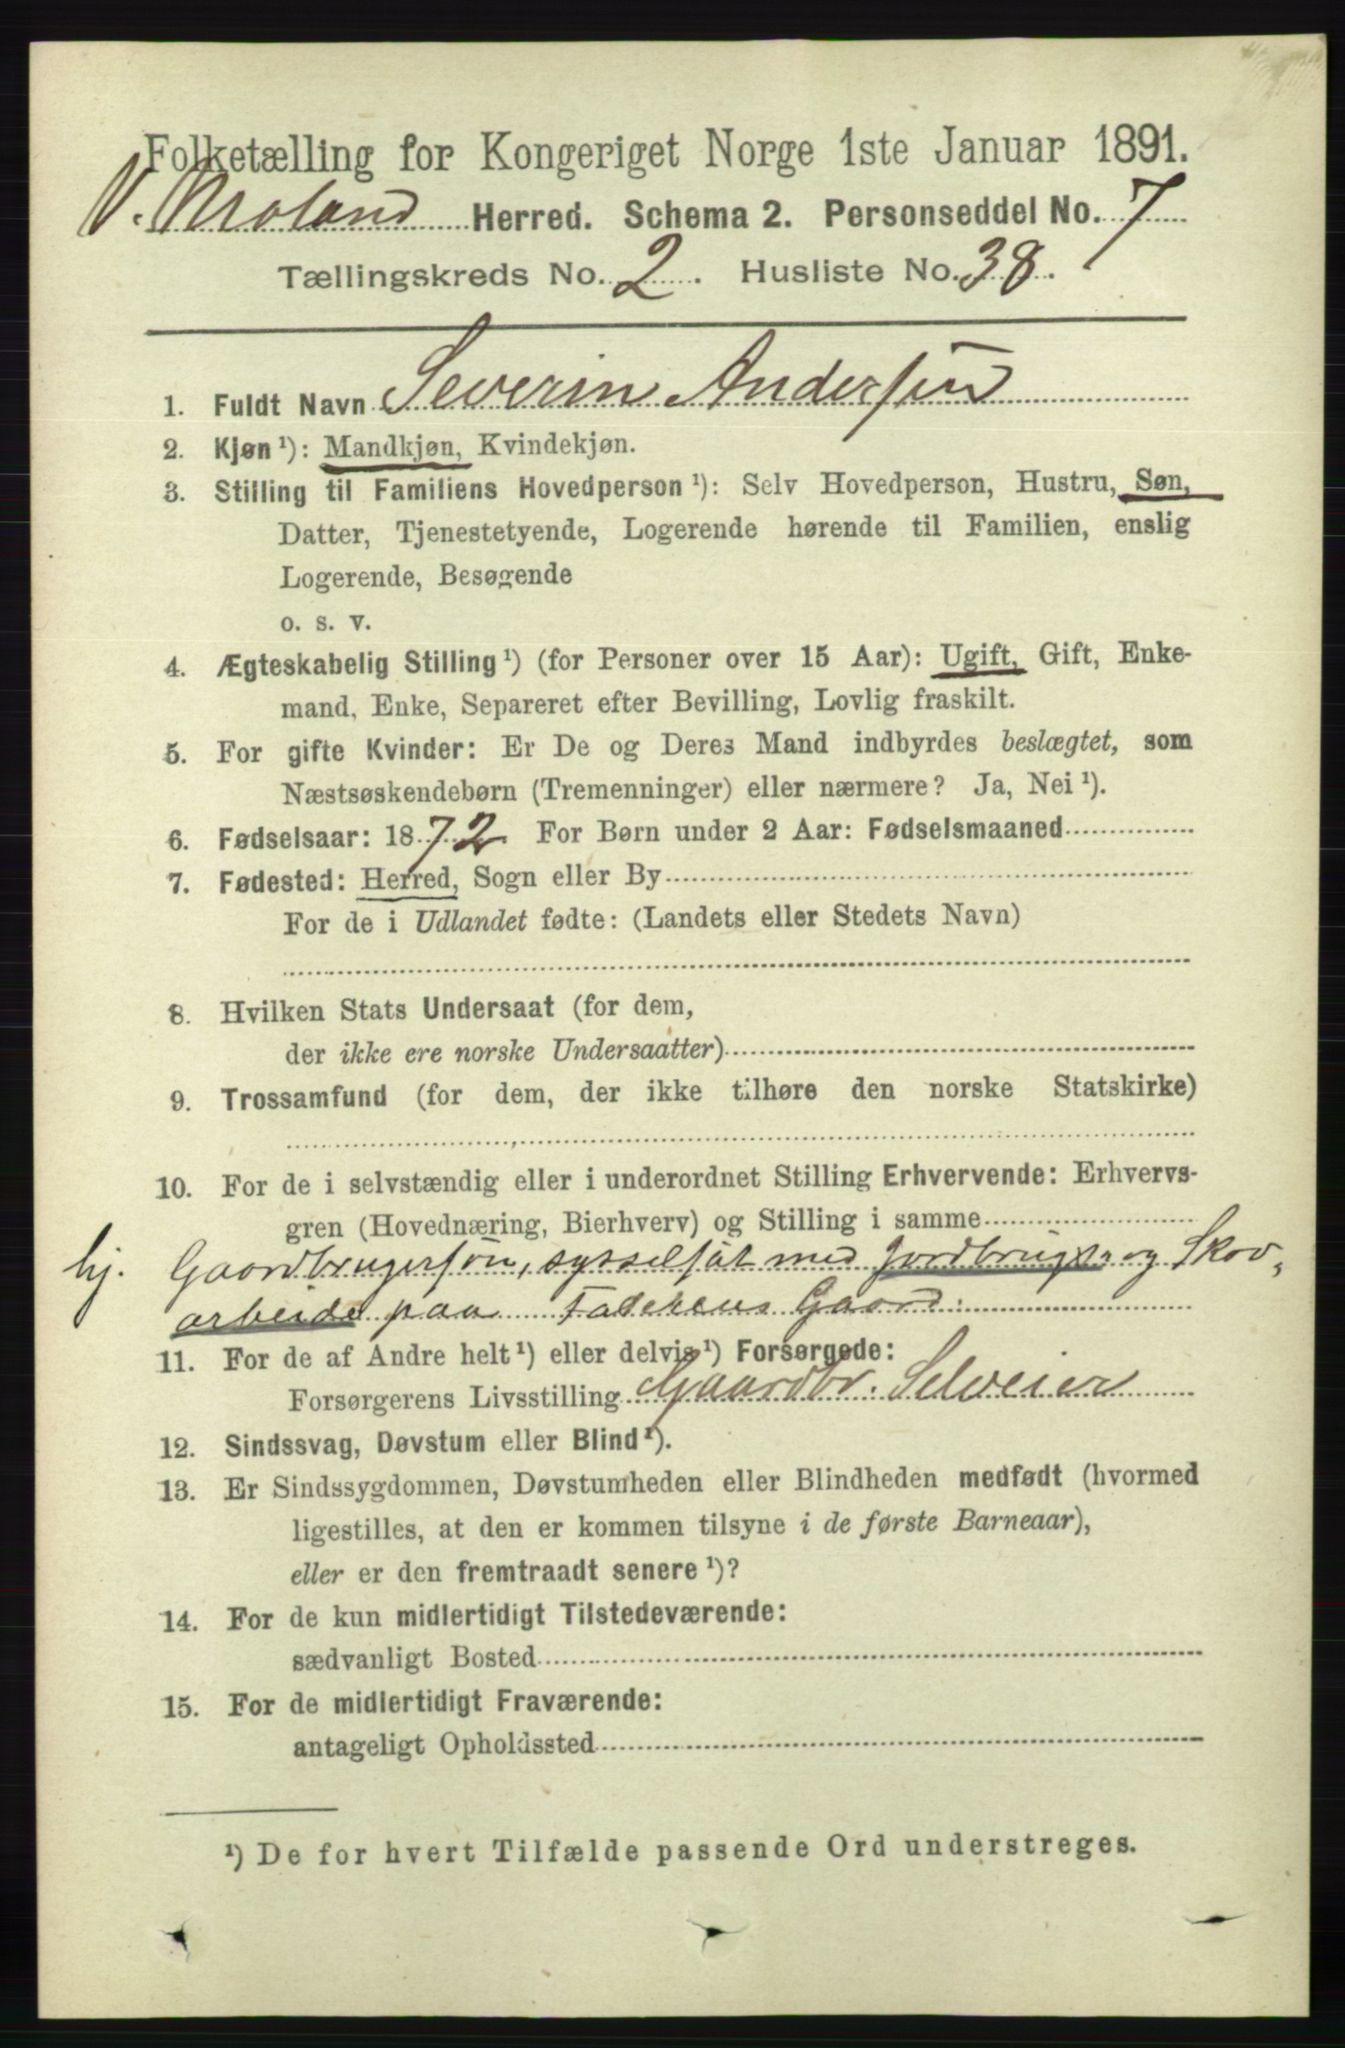 Folketælling for Kongeriget Norge 1ste Januar 1891.
V. Moland Herred. Schema 2. Personseddel No. 7
Tællingskreds No. 2. Husliste No. 38.
1. Fuldt Navn Severin Andersen
2. Kjøn ¹): Mandkjøn, Kvindekjøn.
3. Stilling til Familiens Hovedperson ¹): Selv Hovedperson, Hustru, Søn,
Datter, Tjenestetyende, Logerende hørende til Familien, enslig
Logerende, Besøgende
o. s. v.
4. Ægteskabelig Stilling ¹) (for Personer over 15 Aar): Ugift, Gift, Enke-
mand, Enke, Separeret efter Bevilling, Lovlig fraskilt.
5. For gifte Kvinder: Er De og Deres Mand indbyrdes beslægtet, som
Næstsøskendebørn (Tremenninger) eller nærmere? Ja, Nei ¹).
6. Fødselsaar: 1872 For Børn under 2 Aar: Fødselsmaaned
7. Fødested: Herred, Sogn eller By
For de i Udlandet fødte: (Landets eller Stedets Navn)
8. Hvilken Stats Undersaat (for dem,
der ikke ere norske Undersaatter)
9. Trossamfund (for dem, der ikke tilhøre den norske Statskirke)
10. For de i selvstændig eller i underordnet Stilling Erhvervende: Erhvervs-
gren (Hovednæring, Bierhverv) og Stilling i samme
hj. Gaardbrugersøn, sysselsat med Jordbrugs- og Skov-
arbeide paa Faderens Gaard.
11. For de af Andre helt ¹) eller delvis ¹) Forsørgede:
Forsørgerens Livsstilling Gaardbr. Selveier
12. Sindssvag, Døvstum eller Blind ¹).
13. Er Sindssygdommen, Døvstumheden eller Blindheden medfødt (hvormed
ligestilles, at den er kommen tilsyne i de første Barneaar),
eller er den fremtraadt senere ¹)?
14. For de kun midlertidigt Tilstedeværende:
sædvanligt Bosted
15. For de midlertidigt Fraværende:
antageligt Opholdssted
¹) De for hvert Tilfælde passende Ord understreges.